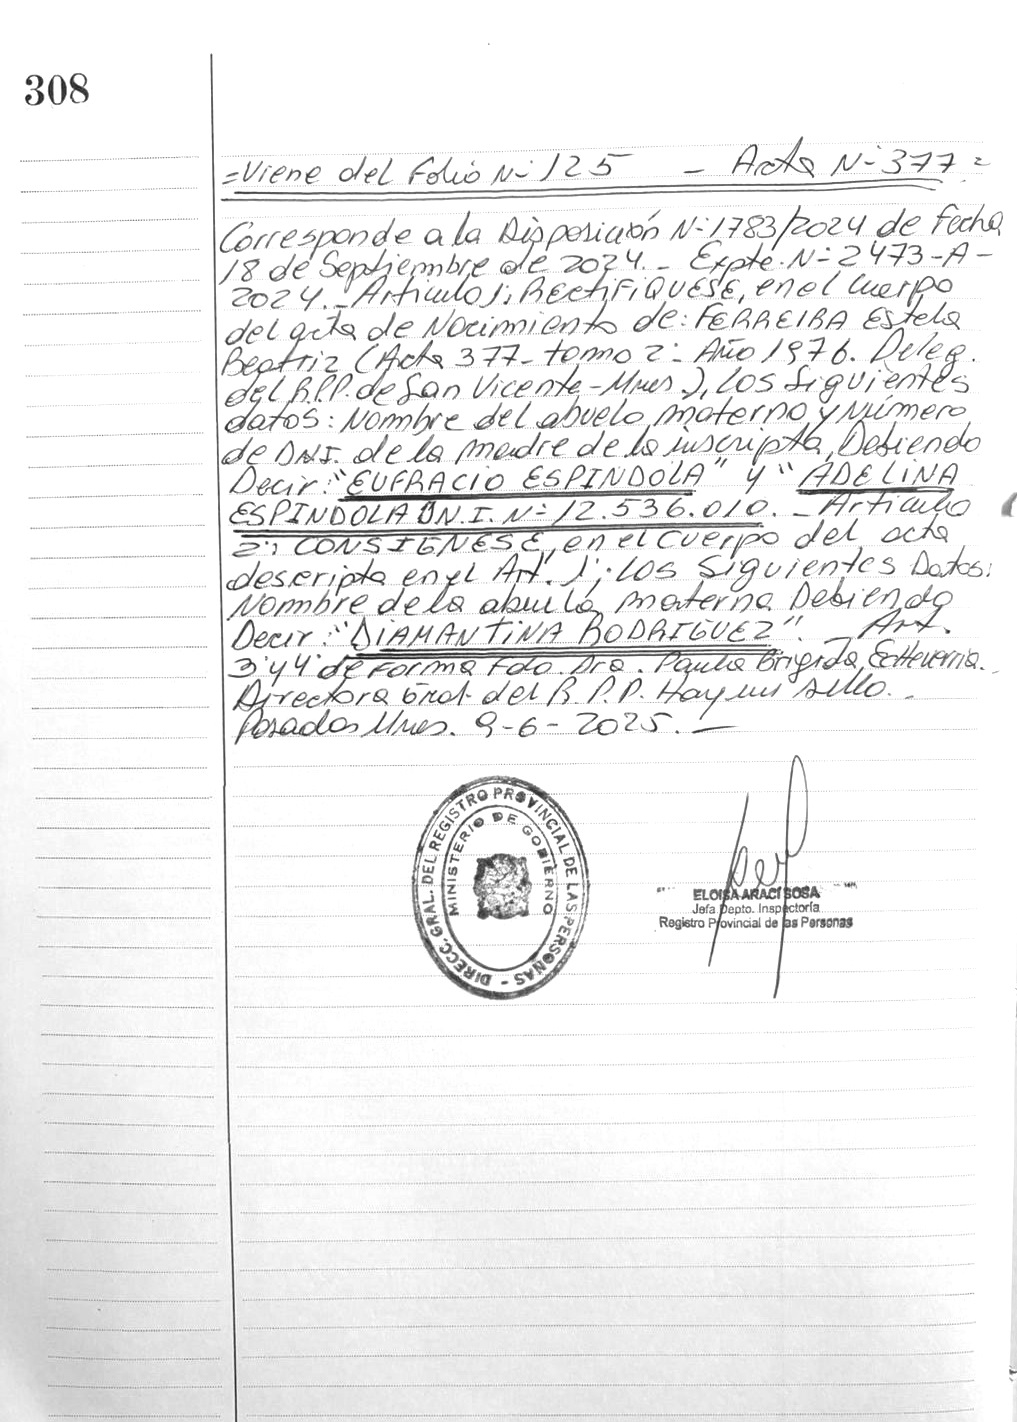 308
=Viene del Folio N- 125 - Acta N- 377=
Corresponde a la Disposición N-1783/2024 de Fecha
18 de Septiembre de 2024.- Expte. N- 2473-A-
2024.- Articulo 1: RECTIFIQUESE, en el Cuerpo
del acta de Nacimiento de: FERREIRA Estela
Beatriz (Acta 377- tomo 2- Año 1976. Deleg.
del R.P.P. de San Vicente-Mnes.), los siguientes
datos: Nombre del abuelo materno y Número
de D.N.I. de la madre de la inscripta, Debiendo
Decir: "EUFRACIO ESPINDOLA" y "ADELINA
ESPINDOLA D.N.I. N- 12.536.010.- Articulo
2: CONSIGNESE, en el Cuerpo del acta
descripta en el Art. 1; los Siguientes Datos:
Nombre de la abuela materna Debiendo
Decir: "DIAMANTINA RODRIGUEZ". - Art.
3 y 4 de Forma Fdo. Dra. Paula Brigida Echeverria.
Directora Gral. del R.P.P. Hay un sello.-
Posadas Mnes. 9-6-2025.-
DIRECC. GRAL. DEL REGISTRO PROVINCIAL DE LAS PERSONAS -
MINISTERIO DE GOBIERNO
ELOISA ARACI SOSA
Jefa Depto. Inspectoría
Registro Provincial de las Personas